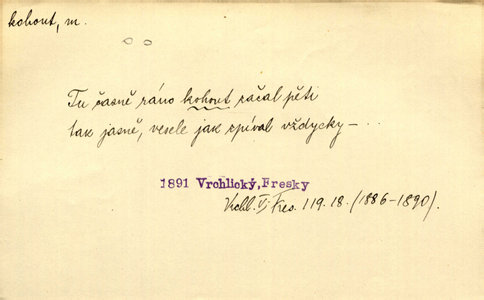 kohout, m.
Tu časně ráno kohout začal pěti
tak jasně, vesele jak zpíval vždycky – . .
1891 Vrchlický, Fresky
Vrchl. Fres. 119. 18. (1886–1890).